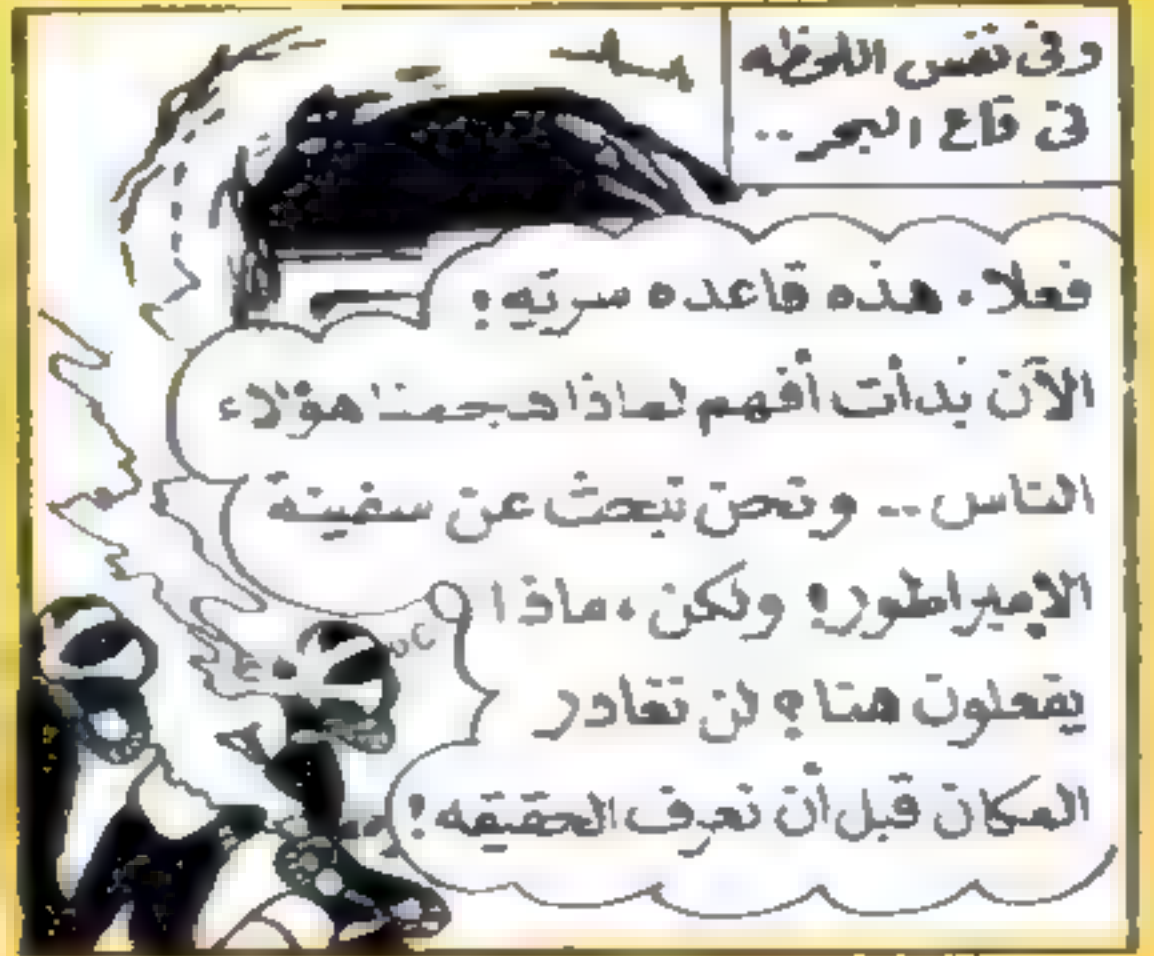 وفى نفس اللحظه
فى قاع البحر..
فعلا، هذه قاعده سريه!
الآن بدأت أفهم لماذا هجمنا هؤلاء
الناس.. ونحن نبحث عن سفينة
الإمبراطور! ولكن، ماذا
يفعلون هنا؟ لن نغادر
المكان قبل أن نعرف الحقيقه!